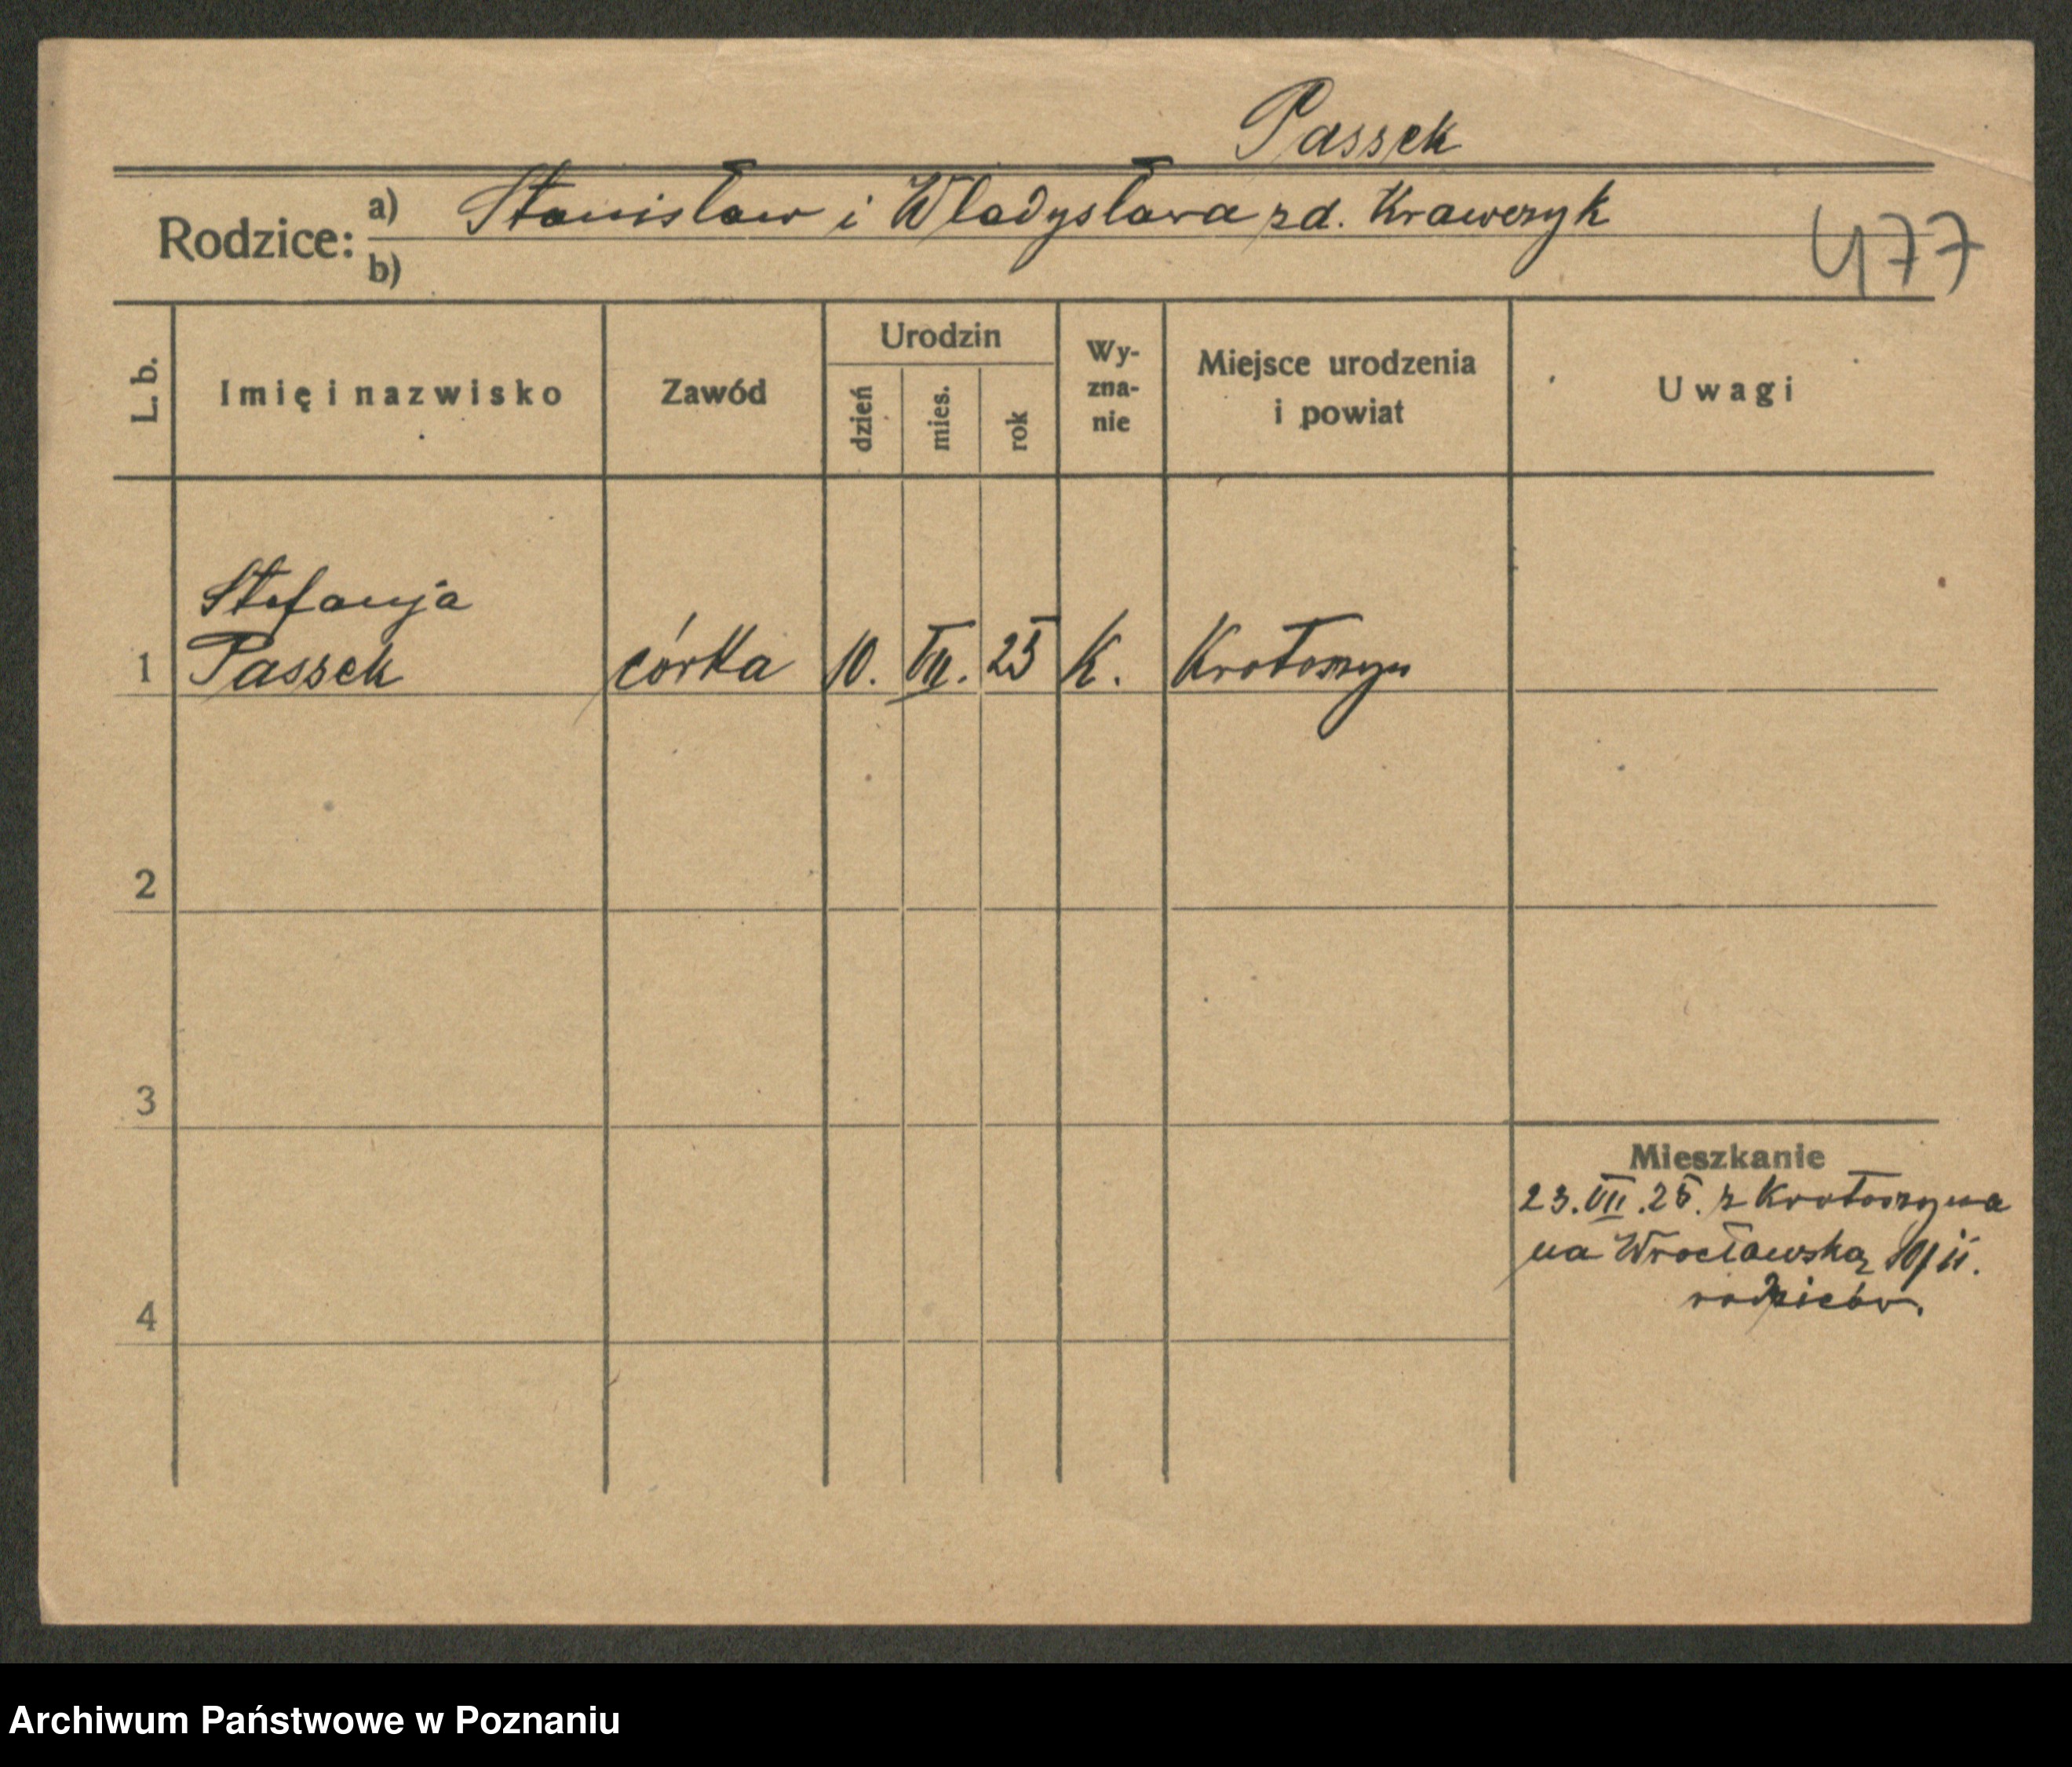 Passek
Rodzice: a) Stanisław i Władysława zd. Krawczyk
b)
477
L. b. Imię i nazwisko Zawód Urodzin dzień mies. rok Wy-zna-nie Miejsce urodzenia i powiat Uwagi
Stefanja
1 Passek córka 10. VII. 25 K. Krotoszyn
2
3
Mieszkanie
23. VII. 25. z Krotoszyna
na Wrocławską 10/ii.
4 rodziców.
Archiwum Państwowe w Poznaniu